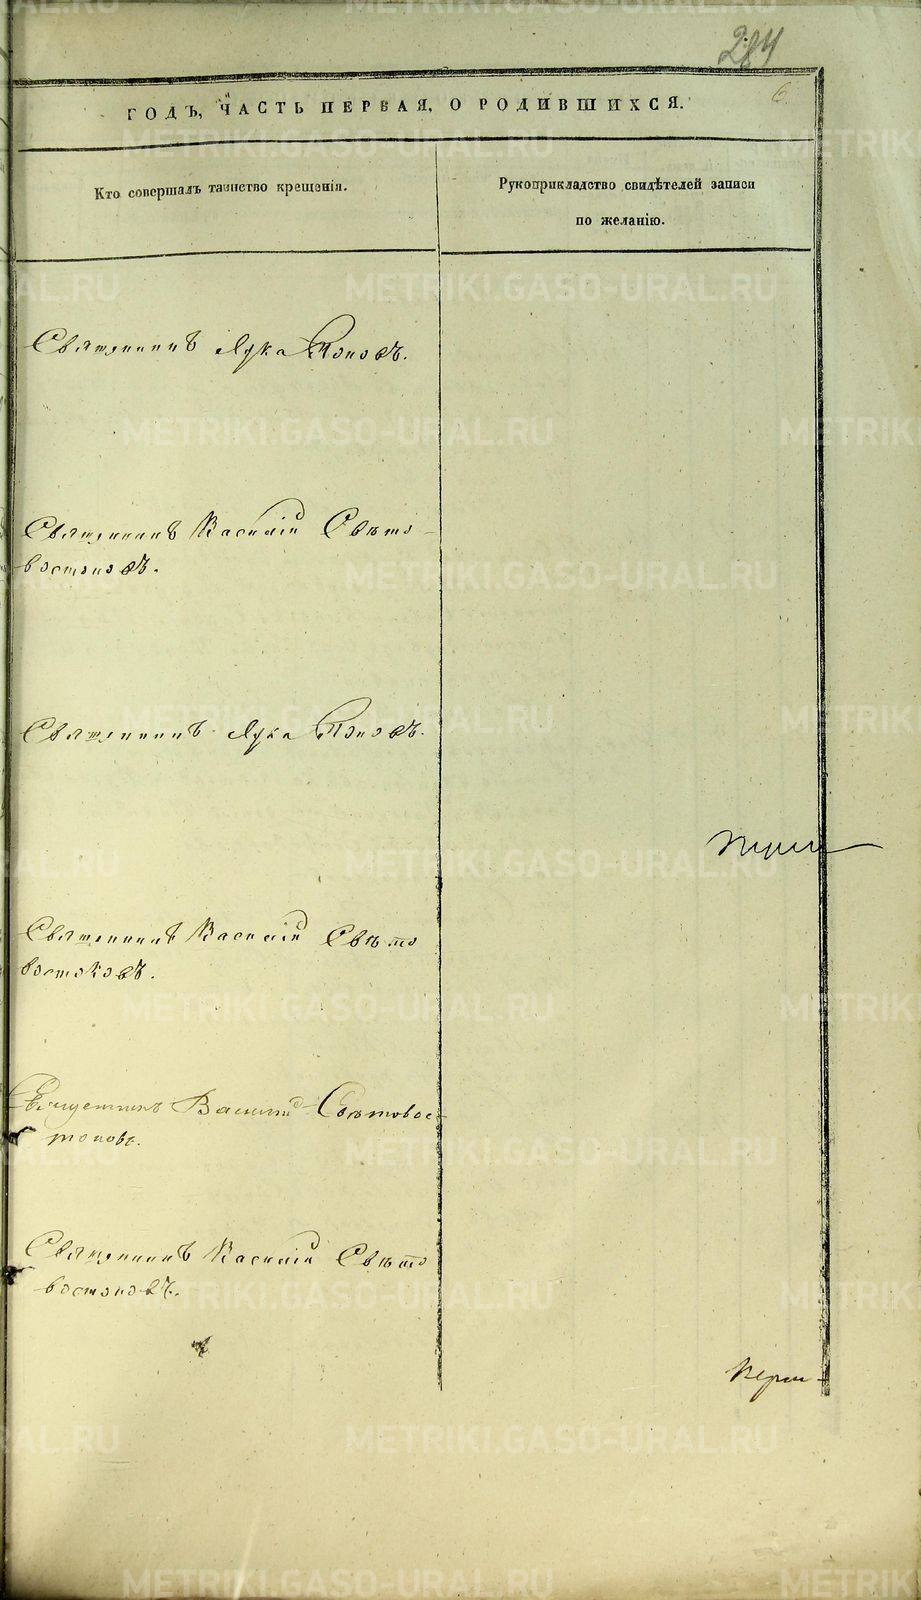 284
6
ГОДЪ, ЧАСТЬ ПЕРВАЯ, О РОДИВШИХСЯ.
Кто совершалъ таинство крещенія.
Рукоприкладство свидѣтелей записи
по желанію.
Священникъ Лука Поповъ.
Священникъ Василій Свѣто-
востоковъ.
Священникъ Лука Поповъ.
Священникъ Василій Свѣто
востоковъ.
Священникъ Василій Свѣтовос-
токовъ.
Священникъ Василій Свѣто
востоковъ.
METRIKI.GASO-URAL.RU